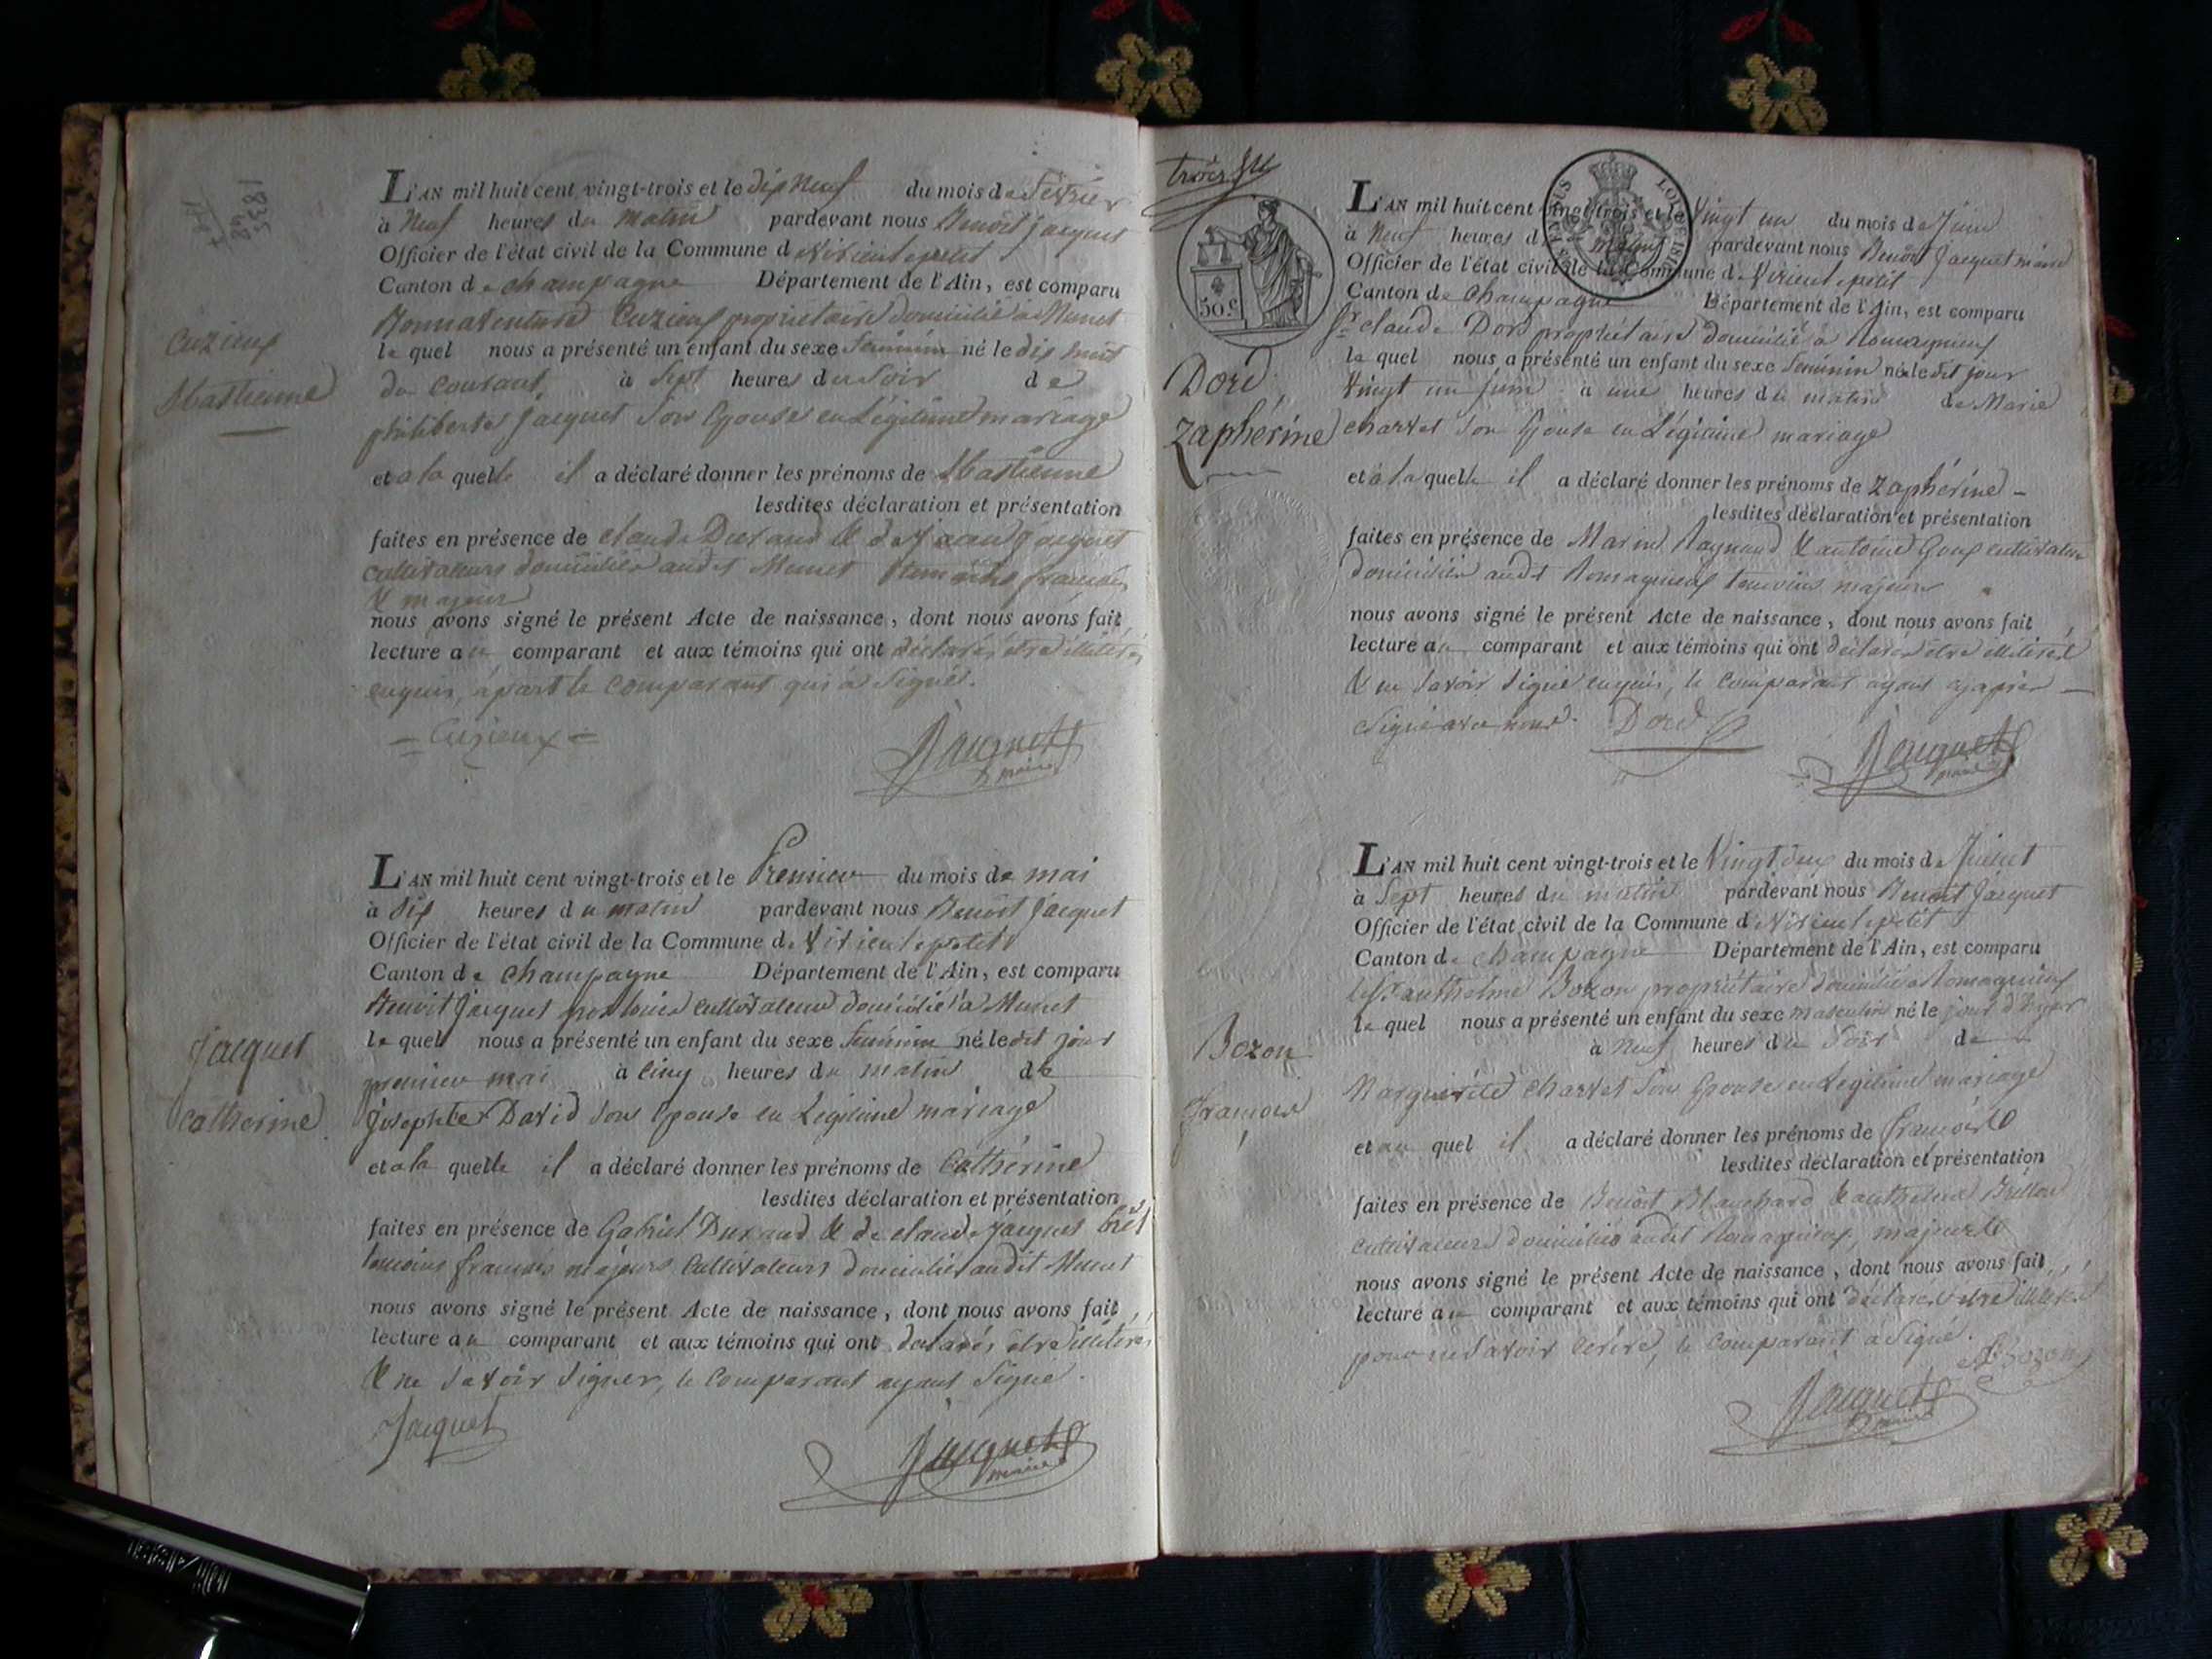 1833
L'AN mil huit cent vingt-trois et le dix neuf du mois de février
à neuf heures du matin pardevant nous Benoit Jacquet
Officier de l'état civil de la Commune de Virieu le petit
Canton de champagne Département de l'Ain, est comparu
Bonnaventure Cuzieux propriétaire domicilié à Munet
le quel nous a présenté un enfant du sexe féminin né le dix huit
du courant à sept heures du soir de
philiberte Jacquet son Epouse en Légitime mariage
et a la quelle il a déclaré donner les prénoms de
lesdites déclaration et présentation
faites en présence de claude Durand & de Jacquet
cultivateurs domiciliés audit Munet témoins français
& majeurs
nous avons signé le présent Acte de naissance, dont nous avons fait
lecture au comparant et aux témoins qui ont déclarés être illitérés
enquis, àpart le comparant qui a signé.
Cuzieux
Jacquet
maire
Cuzieux
L'AN mil huit cent vingt-trois et le Premier du mois de mai
à dix heures du matin pardevant nous Benoit Jacquet
Officier de l'état civil de la Commune de Virieu le petit
Canton de champagne Département de l'Ain, est comparu
Benoit Jacquet cultivateur domicilié à Munet
le quel nous a présenté un enfant du sexe féminin né le dit jour
premier mai à cinq heures du matin de
Josephte David son Epouse en Légitime mariage
et a la quelle il a déclaré donner les prénoms de Cathérine
lesdites déclaration et présentation
faites en présence de Gabriel Durand & de claude Jacquet
témoins français majeurs Cultivateurs domiciliés audit Munet
nous avons signé le présent Acte de naissance, dont nous avons fait
lecture au comparant et aux témoins qui ont déclarés être illitérés
& ne savoir signer, le comparant ayant signé.
Jacquet
Jacquet
maire
Jacquet
Catherine
50 c.
L'AN mil huit cent vingt-trois et le vingt un du mois de Juin
à neuf heures du matin pardevant nous Benoit Jacquet maire
Officier de l'état civil de la Commune de Virieu le petit
Canton de Champagne Département de l'Ain, est comparu
Sr claude Dord propriétaire domicilié à Romagnieux
le quel nous a présenté un enfant du sexe féminin né le dit jour
vingt un juin à une heures du matin de Marie
charvet son Epouse en Légitime mariage
et à la quelle il a déclaré donner les prénoms de Zaphérine
lesdites déclaration et présentation
faites en présence de Marin Raynaud & antoine Goux cultivateurs
domiciliés audit Romagnieux témoins majeurs
nous avons signé le présent Acte de naissance, dont nous avons fait
lecture au comparant et aux témoins qui ont déclarés être illitérés
& ne savoir signer enquis, le comparant ayant cyaprès
signé avec nous. Dord
Jacquet
maire
Dord
Zaphérine
L'AN mil huit cent vingt-trois et le vingt deux du mois de Juillet
à sept heures du matin pardevant nous Benoit Jacquet
Officier de l'état civil de la Commune de Virieu le petit
Canton de champagne Département de l'Ain, est comparu
anthelme Bozon propriétaire domicilié à Romagnieux
le quel nous a présenté un enfant du sexe masculin né le jour d'hyer
à neuf heures du soir de
Marguérite charvet son Epouse en Légitime mariage
et au quel il a déclaré donner les prénoms de françois
lesdites déclaration et présentation
faites en présence de Benoit Blanchard & anthelme
cultivateurs domiciliés audit Romagnieux, majeurs
nous avons signé le présent Acte de naissance, dont nous avons fait
lecture au comparant et aux témoins qui ont déclarés être illitérés
pour ne savoir écrire, le comparant a signé.
Bozon
Jacquet
maire
Bozon
françois